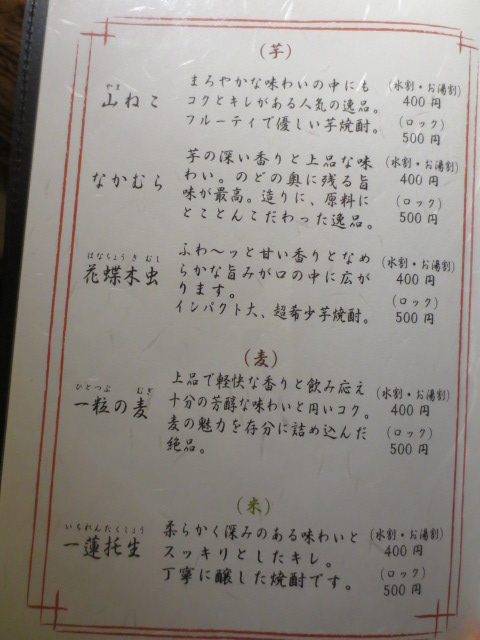 （芋）
やま
山ねこ
まろやかな味わいの中にも
コクとキレがある人気の逸品。
フルーティで優しい芋焼酎。
（水割・お湯割）
400円
（ロック）
500円
なかむら
芋の深い香りと上品な味
わい。のどの奥に残る旨
味が最高。造りに、原料に
とことんこだわった逸品。
（水割・お湯割）
400円
（ロック）
500円
はなちょうきむし
花蝶木虫
ふわ〜ッと甘い香りとなめ
らかな旨みが口の中に広が
ります。
インパクト大、超希少芋焼酎。
（水割・お湯割）
400円
（ロック）
500円
（麦）
ひとつぶ むぎ
一粒の麦
上品で軽快な香りと飲み応え
十分の芳醇な味わいと円いコク。
麦の魅力を存分に詰め込んだ
絶品。
（水割・お湯割）
400円
（ロック）
500円
（米）
いちれんたくしょう
一蓮托生
柔らかく深みのある味わいと
スッキリとしたキレ。
丁寧に醸した焼酎です。
（水割・お湯割）
400円
（ロック）
500円